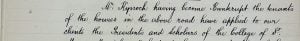 Mr Kynoch having become Bankrupt the tenants
of the houses in the above road have applied to our
clients the Presidents and Scholars of the College of St.